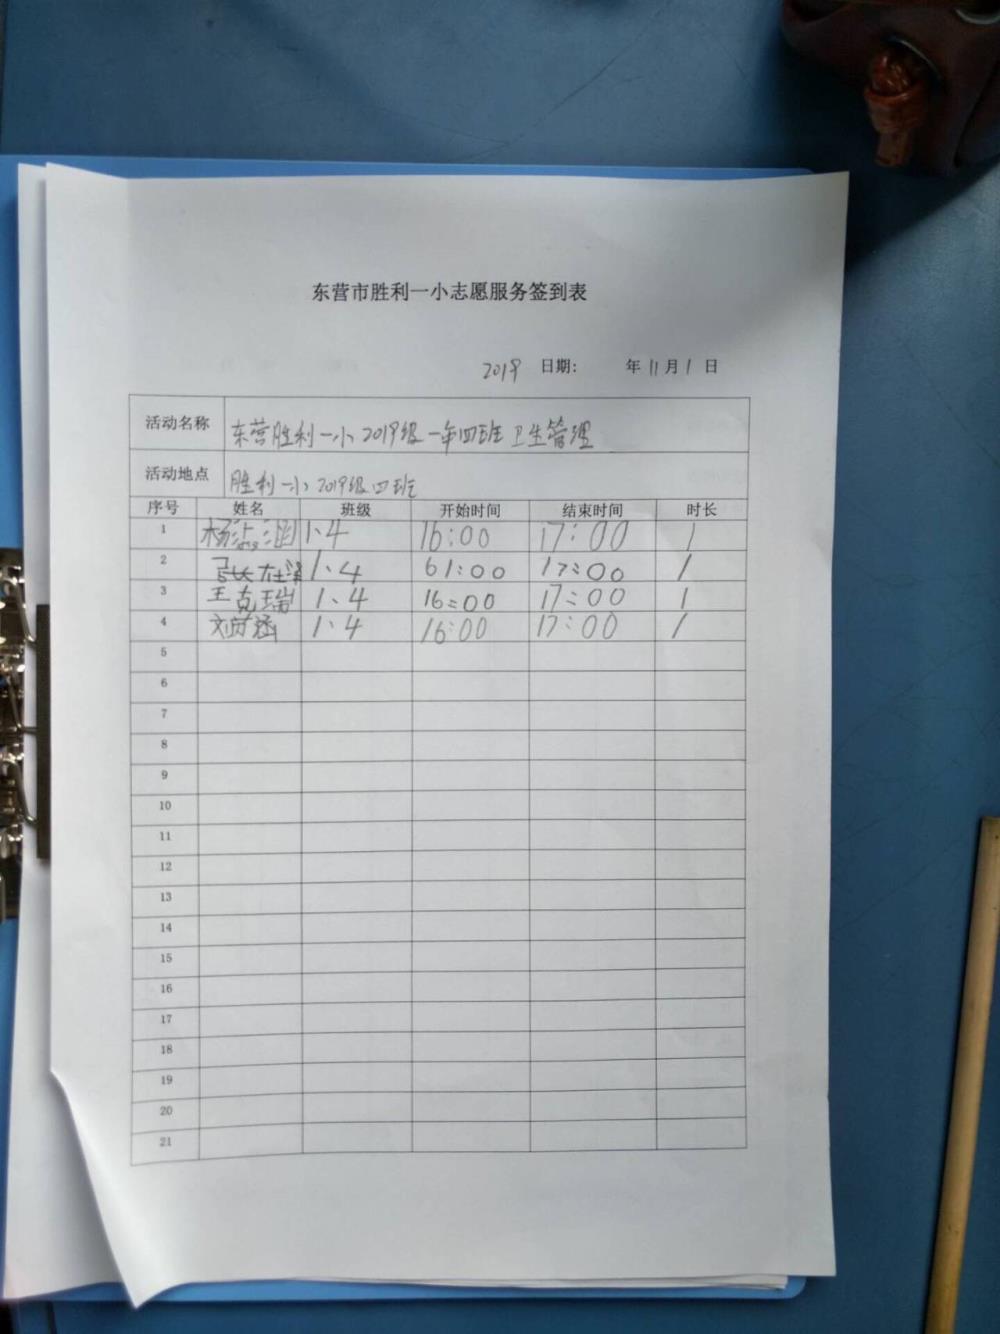 东营市胜利一小志愿服务签到表
2019 日期: 年 11 月 1 日
活动名称 东营胜利一小2019级一年四班卫生管理
活动地点 胜利一小2019级四班
序号 姓名 班级 开始时间 结束时间 时长
1 杨 涵 1、4 16:00 17:00 1
2 张 1、4 61:00 17:00 1
3 王克瑞 1、4 16:00 17:00 1
4 刘 涵 1、4 16:00 17:00 1
5
6
7
8
9
10
11
12
13
14
15
16
17
18
19
20
21